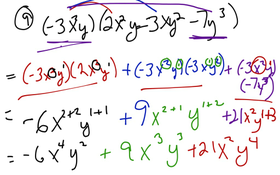 ⑨ (-3x²y)(2x²y-3xy²-7y³)
=(-3x²y¹)(2x²y¹)+(-3x²y¹)(-3xy²)+(-3x²y¹)(-7y³)
=-6x²⁺²y¹⁺¹+9x²⁺¹y¹⁺²+21x²y¹⁺³
=-6x⁴y²+9x³y³+21x²y⁴